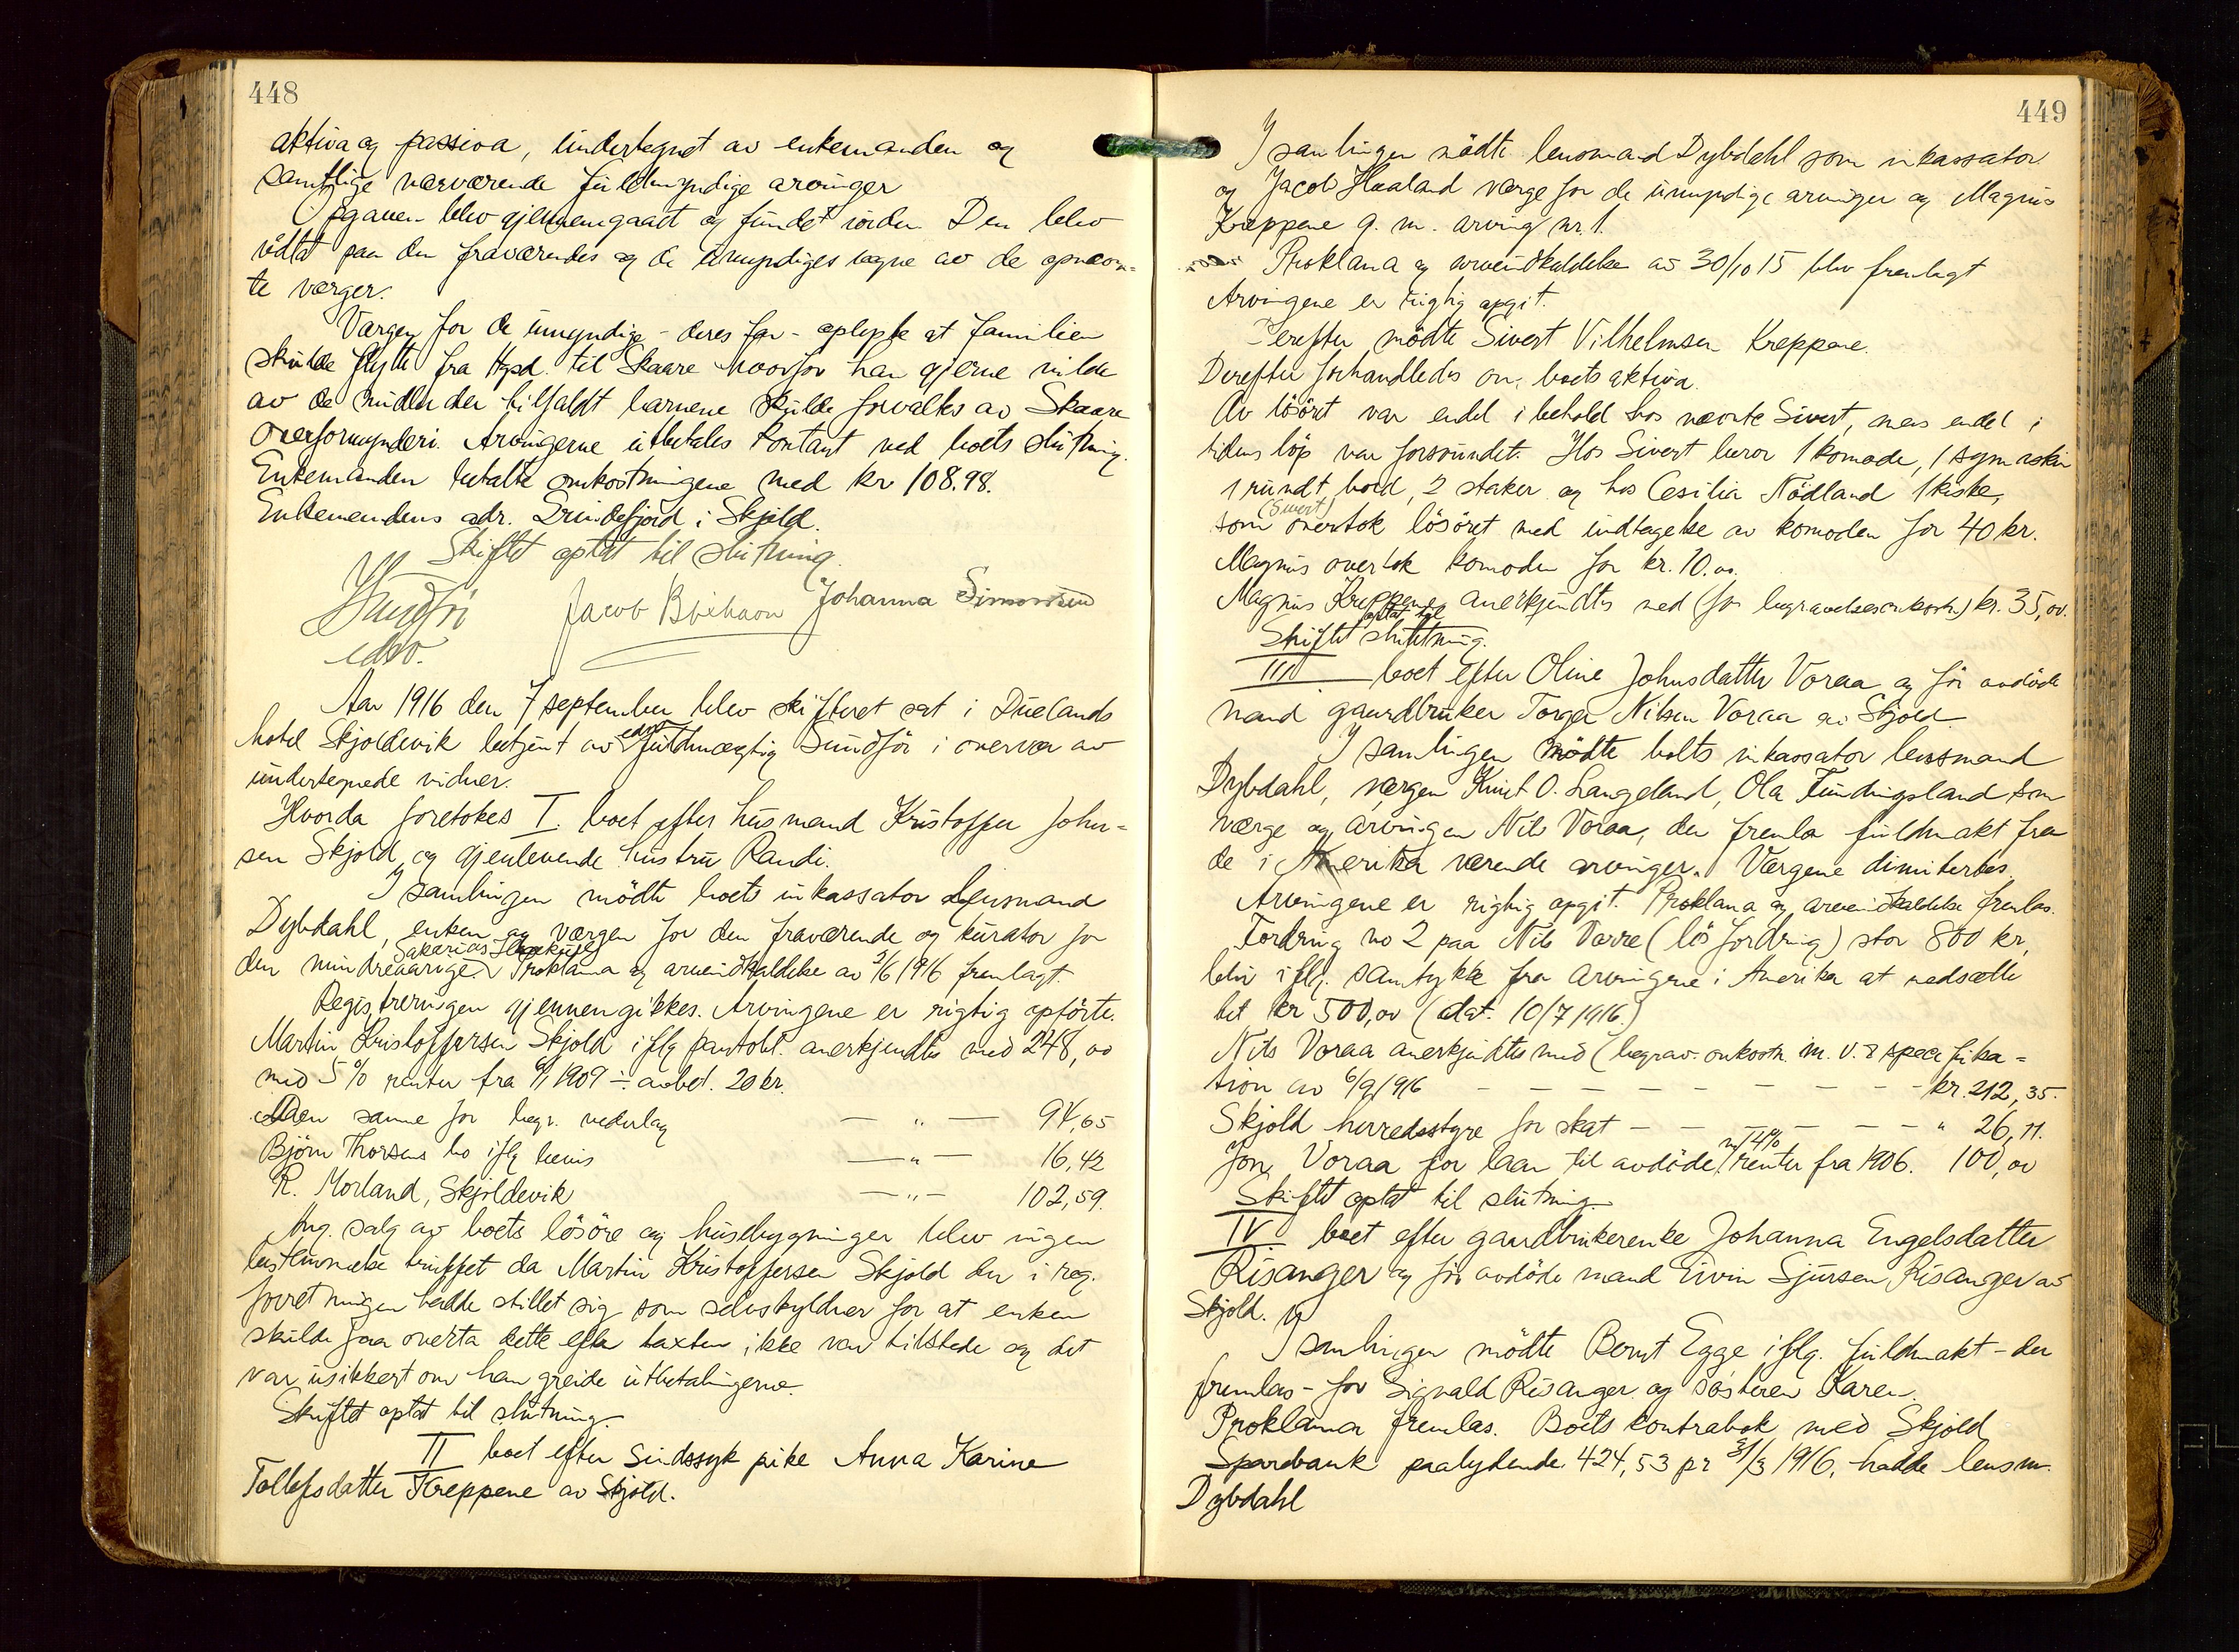 448
aktiva og passiva, undertegnet av enkemanden og
samtlige nærværende fuldmyndige arvinger
Opgaven blev gjennemgaaet og fundet iorden. Den blev
vedtat paa den fraværendes og de umyndiges vegne av de opnævn=
te værger.
Værgen for de umyndige - deres far - oplyste at familien
skulde flytte fra Hgsd. til Skaare hvorfor han gjerne vilde
av de midler der tilfaldt barnene skulde forvaltes av Skaare
Overformynderi. Arvingerne utbetales kontant ved boets slutning.
Enkemanden betalte omkostningene med kr 108.98.
Enkemandens adr. Grindefjord i Skjold.
Skiftet optat til slutning.
Sundför
edsv.
Jacob
Johanna Simonsen
Aar 1916 den 7 september blev skifteret sat i Duelands
hotel Skjoldevik betjent av edsv. fuldmægtig Sundför i overvær av
undertegnede vidner.
Hvorda foretokes I. boet efter husmand Kristoffer John=
sen Skjold og gjenlevende hustru Randi.
I samlingen mödte boets inkassator Lensmand
Dybdahl, enken og værgen for den fraværende og kurator for
den mindreaarige Sakarias. Proklama og arveindkaldelse av 2/6 1916 fremlagt.
Registreringen gjennemgikkes. Arvingene er rigtig opförte.
Martin Kristoffersen Skjold iflg pantobl. anerkjendtes med 248,00
med 5% renter fra 6/1 1909 ÷ avbet. 20 kr.
Den samme for begr. vederlag — " — 94,65
Björn Thorsens bo iflg bevis — " — 16,42
R. Morland, Skjoldevik — " — 102,59.
Ang. salg av boets lösöre og husebygninger blev ingen
bestemmelse truffet da Martin Kristoffersen Skjold der i reg.
forretningen hadde stillet sig som selvskyldner for at enken
skulde faa overta dette efter taxten ikke var tilstede og det
var usikkert om han greide utbetalingerne.
Skiftet optat til slutning.
II boet efter sindssyk pike Anna Karine
Tollefsdatter Kreppene av Skjold.
449
I samlingen mödte lensmand Dybdahl som inkassator
og Jacob Haaland værge for de umyndige arvinger og Magnus
Kreppene g. m. arving nr. 1.
Proklama og arveindkaldelse av 30/10 15 blev fremlagt
Arvingene er rigtig opgit.
Derefter mödte Sivert Vilhelmsen Kreppene.
Derefter forhandledes om boets aktiva.
Av lösöret var endel i behold hos nævnte Sivert, mens endel i
tidens löp var forsvundet. Hos Sivert beror 1 komode, 1 symaskin
1 rundt bord, 2 staker og hos Cesilia Nödland 1 kiste,
som (Sivert) overtok lösöret med undtagelse av komoden for 40 kr.
Magnus overtok komoden for kr. 10.00.
Magnus Kreppene anerkjendtes med (for begravelsesomkostn.) kr. 35,00.
Skiftet optat til slutning.
III boet efter Oline Johnsdatter Voraa og för avdöde
mand gaardbruker Torger Nilsen Voraa av Skjold
I samlingen mödte boets inkassator lensmand
Dybdahl, værgen Knut O. Langeland, Ola Fundingsland som
værge og arvingen Nils Voraa, der fremla fuldmakt fra
de i Amerika værende arvinger. Værgene dimitertes.
Arvingene er rigtig opgit. Proklama og arveindkaldelse fremlas.
Fordring no 2 paa Nils Vorre (lös fordring) stor 800 kr,
blev iflg. samtykke fra arvingene i Amerika at nedsætte
til kr 500,00 (dat. 10/7 1916.)
Nils Voraa anerkjendtes med (begrav. omkostn. m. v. & specifika=
tion av 6/9 1916 — — — — — — — — — kr. 212,35.
Skjold herredsstyre for skat — — — — — — " 26,11.
Jon Voraa for laan til avdöde m/ 4% renter fra 1906. 100,00
Skiftet optat til slutning.
IV boet efter gaardbrukerenke Johanna Engelsdatter
Risanger og för avdöde mand Eivin Sjursen Risanger av
Skjold.
I samlingen mödte Bernt Egge iflg. fuldmakt - der
fremlas - for Sigvald Risanger og sösteren Karen.
Proklama fremlas. Boets kontrabok med Skjold
Sparebank paalydende 424,53 pr 31/3 1916, hadde lensm.
Dybdahl